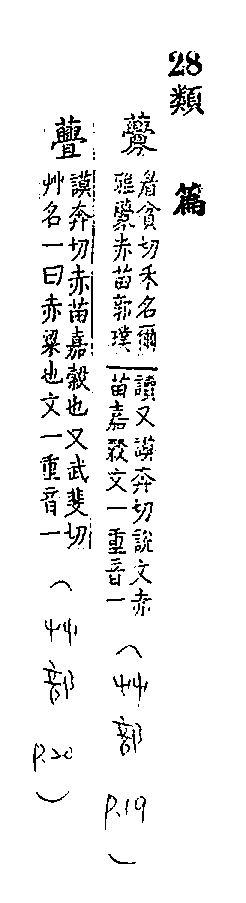 28類篇
虋
眉貧切禾名爾
雅虋赤苗郭璞
讀又謨奔切說文赤
苗嘉穀文一重音一
(艸部 P.19)
謨奔切赤苗嘉穀也又武斐切
艸名一曰赤粱也文一重音一
(艸部 P.20)